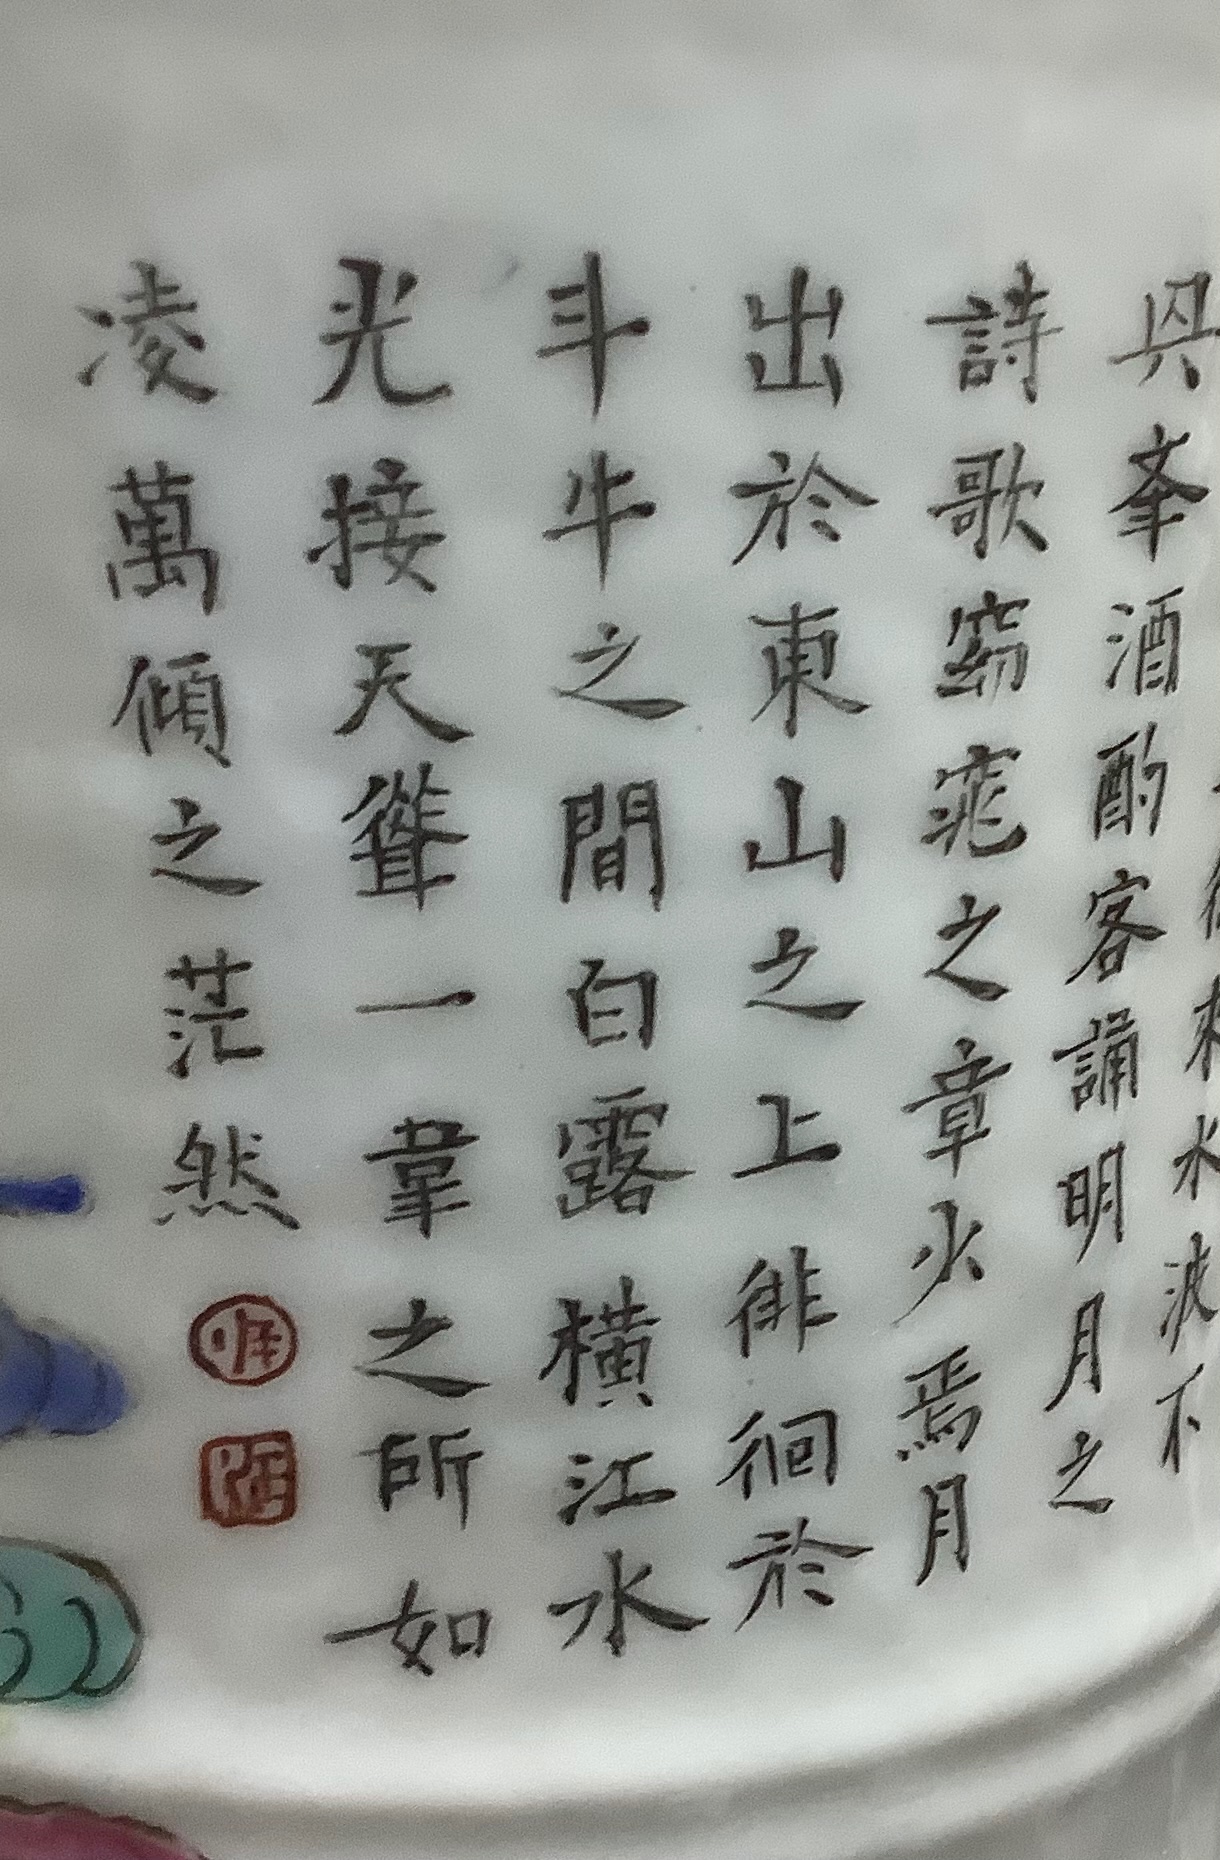 徐來水波不
興峯酒酌客誦明月之
詩歌窈窕之章火焉月
出於東山之上徘徊於
斗牛之間白露橫江水
光接天聳一葦之所如
凌萬傾之茫然